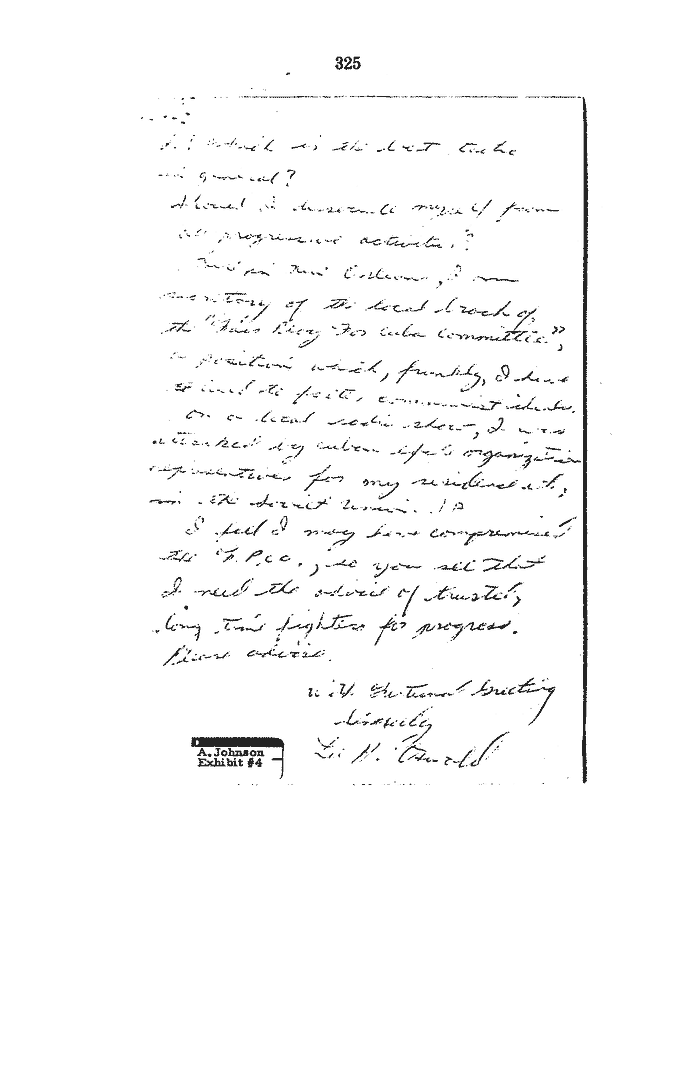 325
which is the best tactic
in general?
Should I dissociate myself from
all progressive activities?
in New Orleans, I am
secretary of the local branch of
the "Fair Play For Cuba Committee",
a position which, frankly, I have
used to foster communist ideals.
On a local radio show, I was
attacked by cuban organization
representatives for my residence etc,
in the Soviet Union.
I feel I may have compromised
the F.P.C.C., so you see that
I need the advice of trusted,
long time fighters for progress.
Please advise.
with Fraternal Greeting
Sincerely
Lee H. Oswald
A. Johnson
Exhibit #4